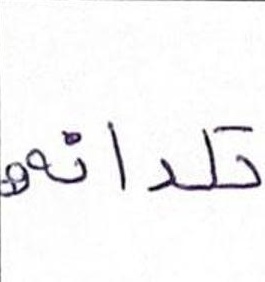 تلدانهو